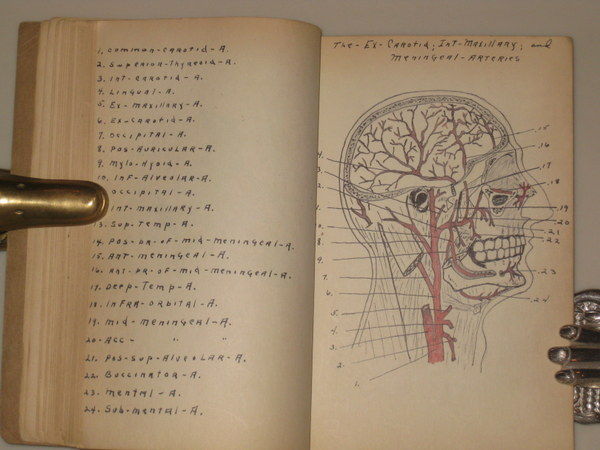 1. Common-Carotid-A.
2. Superior-Thyroid-A.
3. Int-Carotid-A.
4. Lingual-A.
5. Ex-Maxillary-A.
6. Ex-Carotid-A.
7. Occipital-A.
8. Pos-Auricular-A.
9. Mylo-Hyoid-A.
10. Inf-Alveolar-A.
Occipital-A.
Int-Maxillary-A.
13. Sup-Temp-A.
14. Pos-br-of-mid-meningeal-A.
15. Ant-meningeal-A.
16. Ant-br-of-mid-meningeal-A.
17. Deep-Temp-A.
18. Infra-orbital-A.
19. mid-meningeal-A.
20. Acc- " "
21. Pos-sup-Alveolar-A.
22. Buccinator-A.
23. mental-A.
24. Sub-mental-A.
The-Ex-Carotid, Int-Maxillary, and
Meningeal-Arteries
15
16
17
18
19
20
21
22
23
24
4.
3.
2.
1.
9.
8.
9.
7.
6.
5.
4.
3.
2.
1.